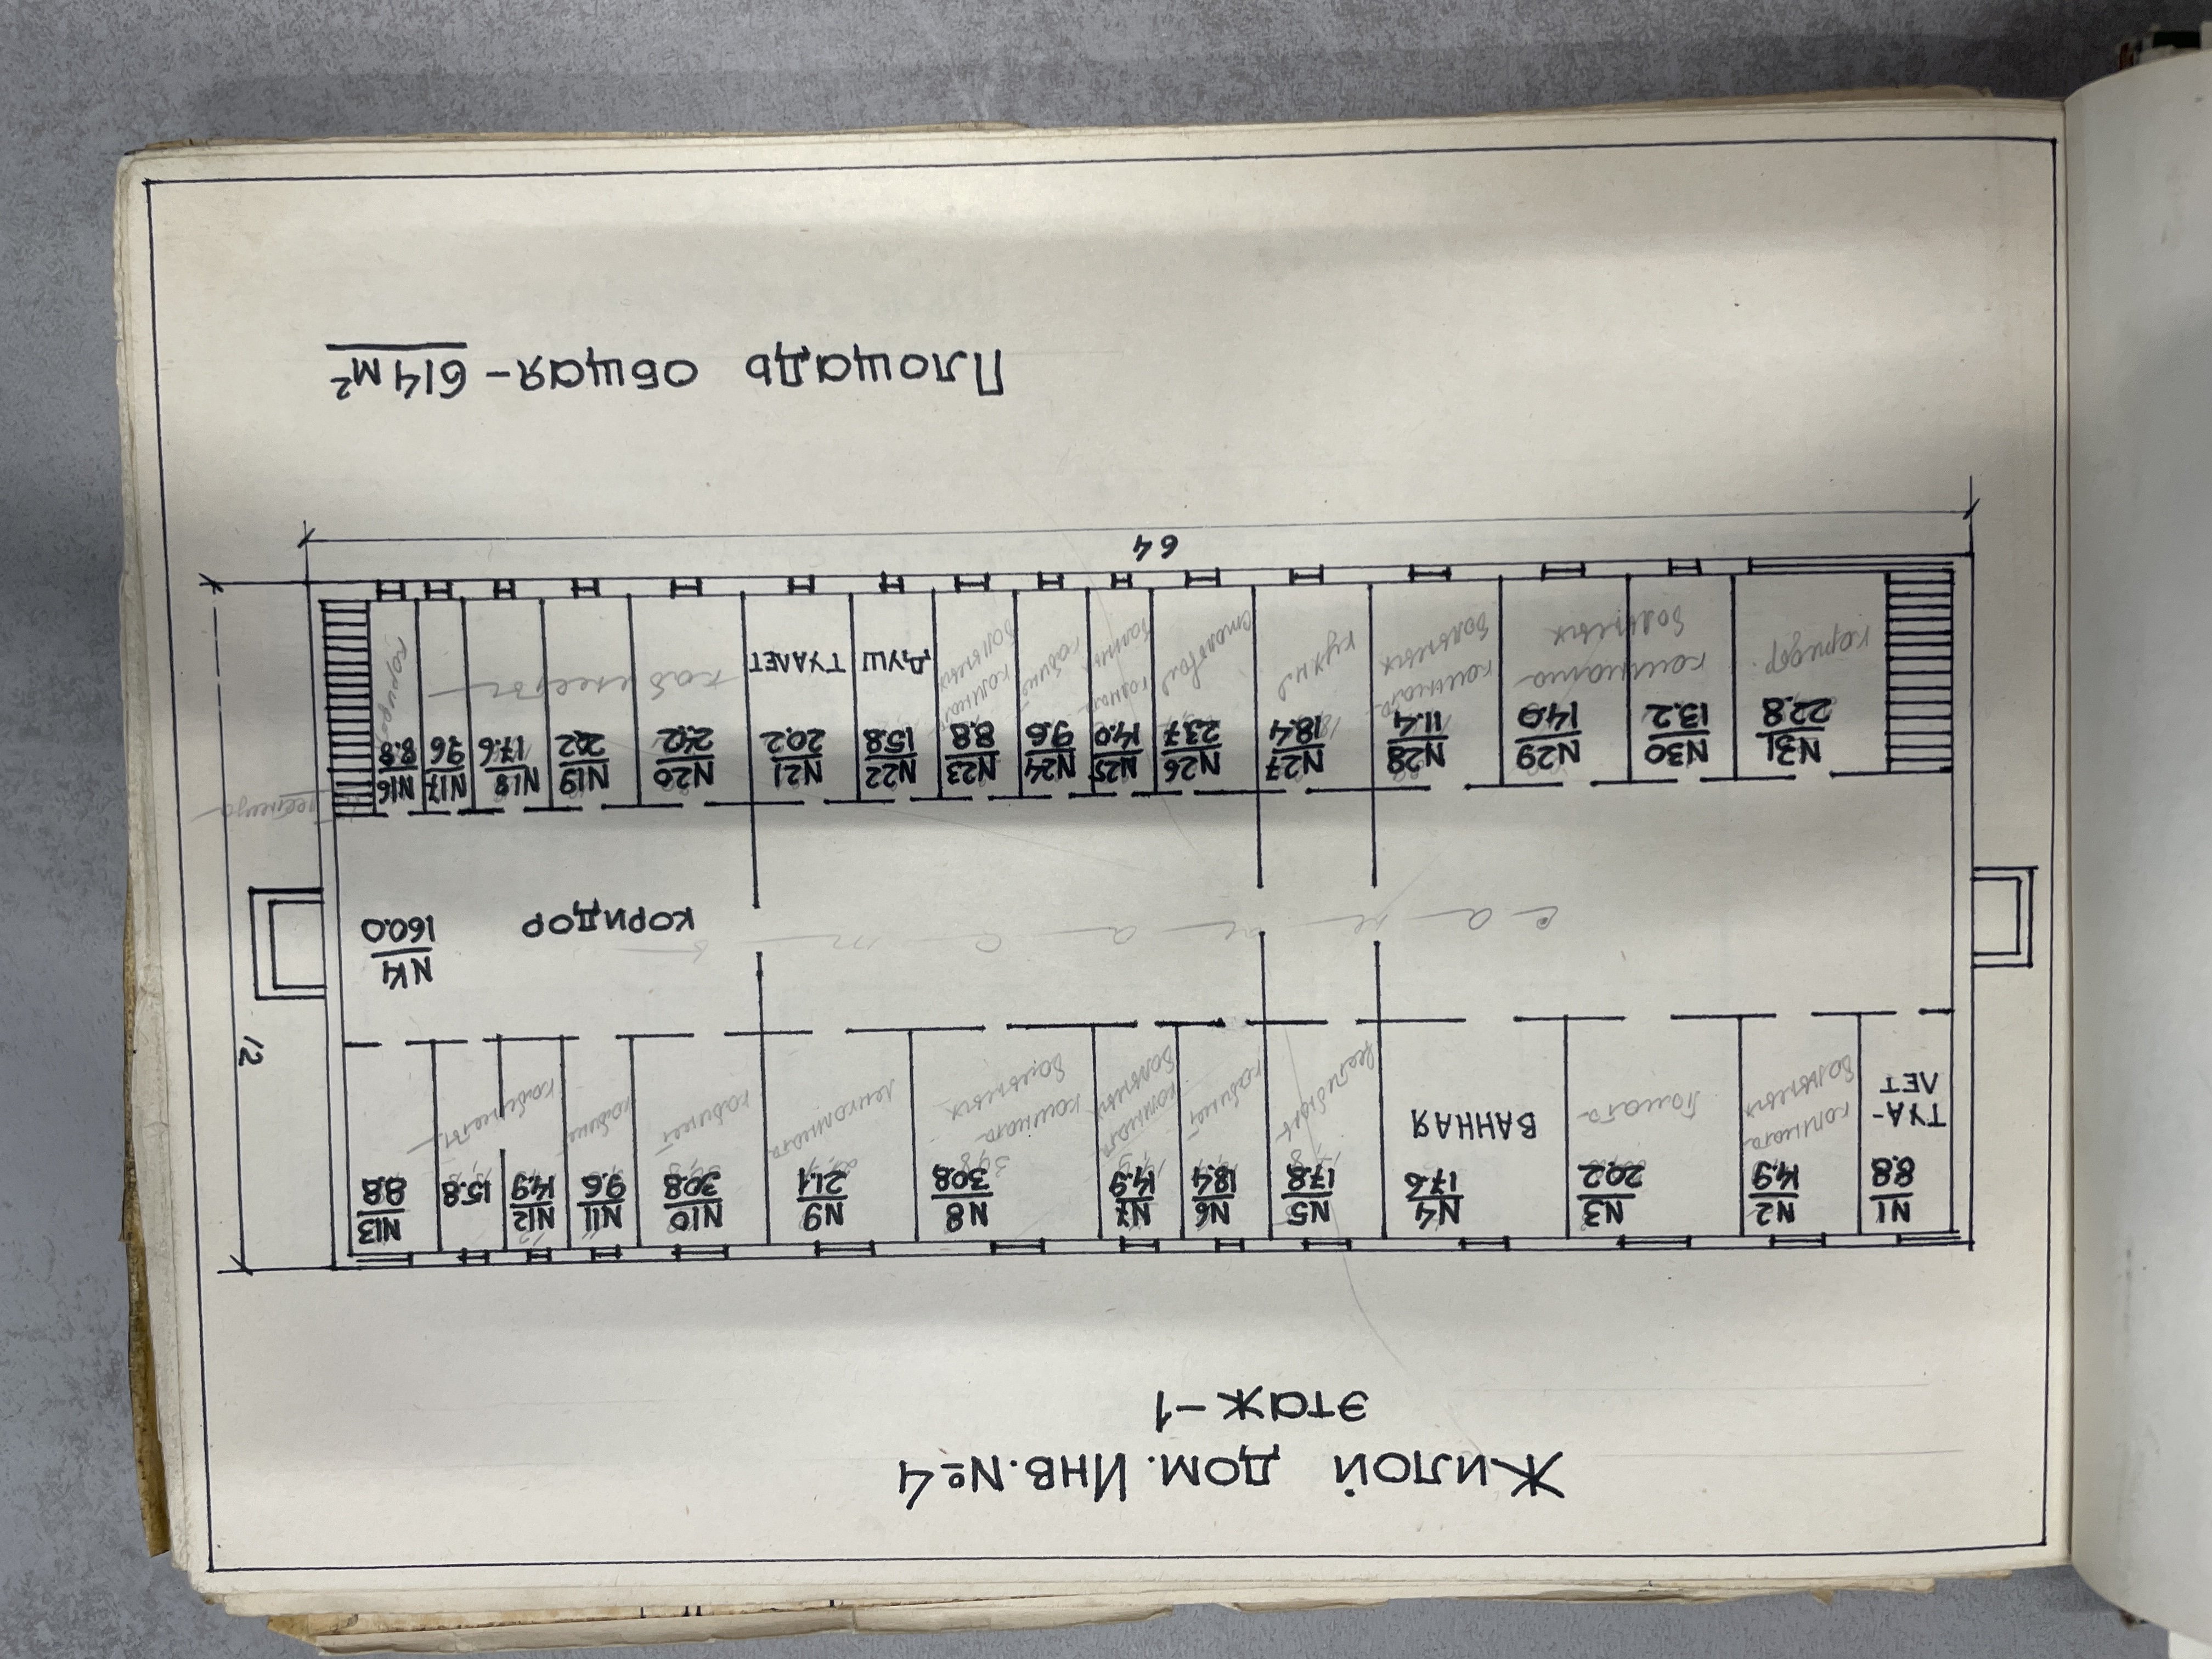 Жилой дом. Инв. №4
этаж-1
N1 8.8 ТУА-
ЛЕТ
N2 14.9 комната больных
N3 20.2
N4 17.6 ВАННАЯ
N5 17.8
N6 18.4 кабинет
N7 14.9 комната больных
N8 30.8 комната больных
N9 21.1
N10 30.8 кабинет
N11 9.6
N12 14.9
15.8
кабинеты
N13 8.8
12
N14
160.0
КОРИДОР
N16 8.8 коридор
N17 9.6
N18 17.6
N19 20.2
N20 24.2
кабинеты
N21 20.2 ТУАЛЕТ
N22 15.8 ДУШ
N23 8.8 комната больных
N24 9.6
N25 14.0
N26 23.7 столовая
N27 18.4 кухня
N28 11.4 комната больных
N29 14.0
N30 13.2
комната больных
N31 22.8 коридор
лестница
64
Площадь общая - 614 м²